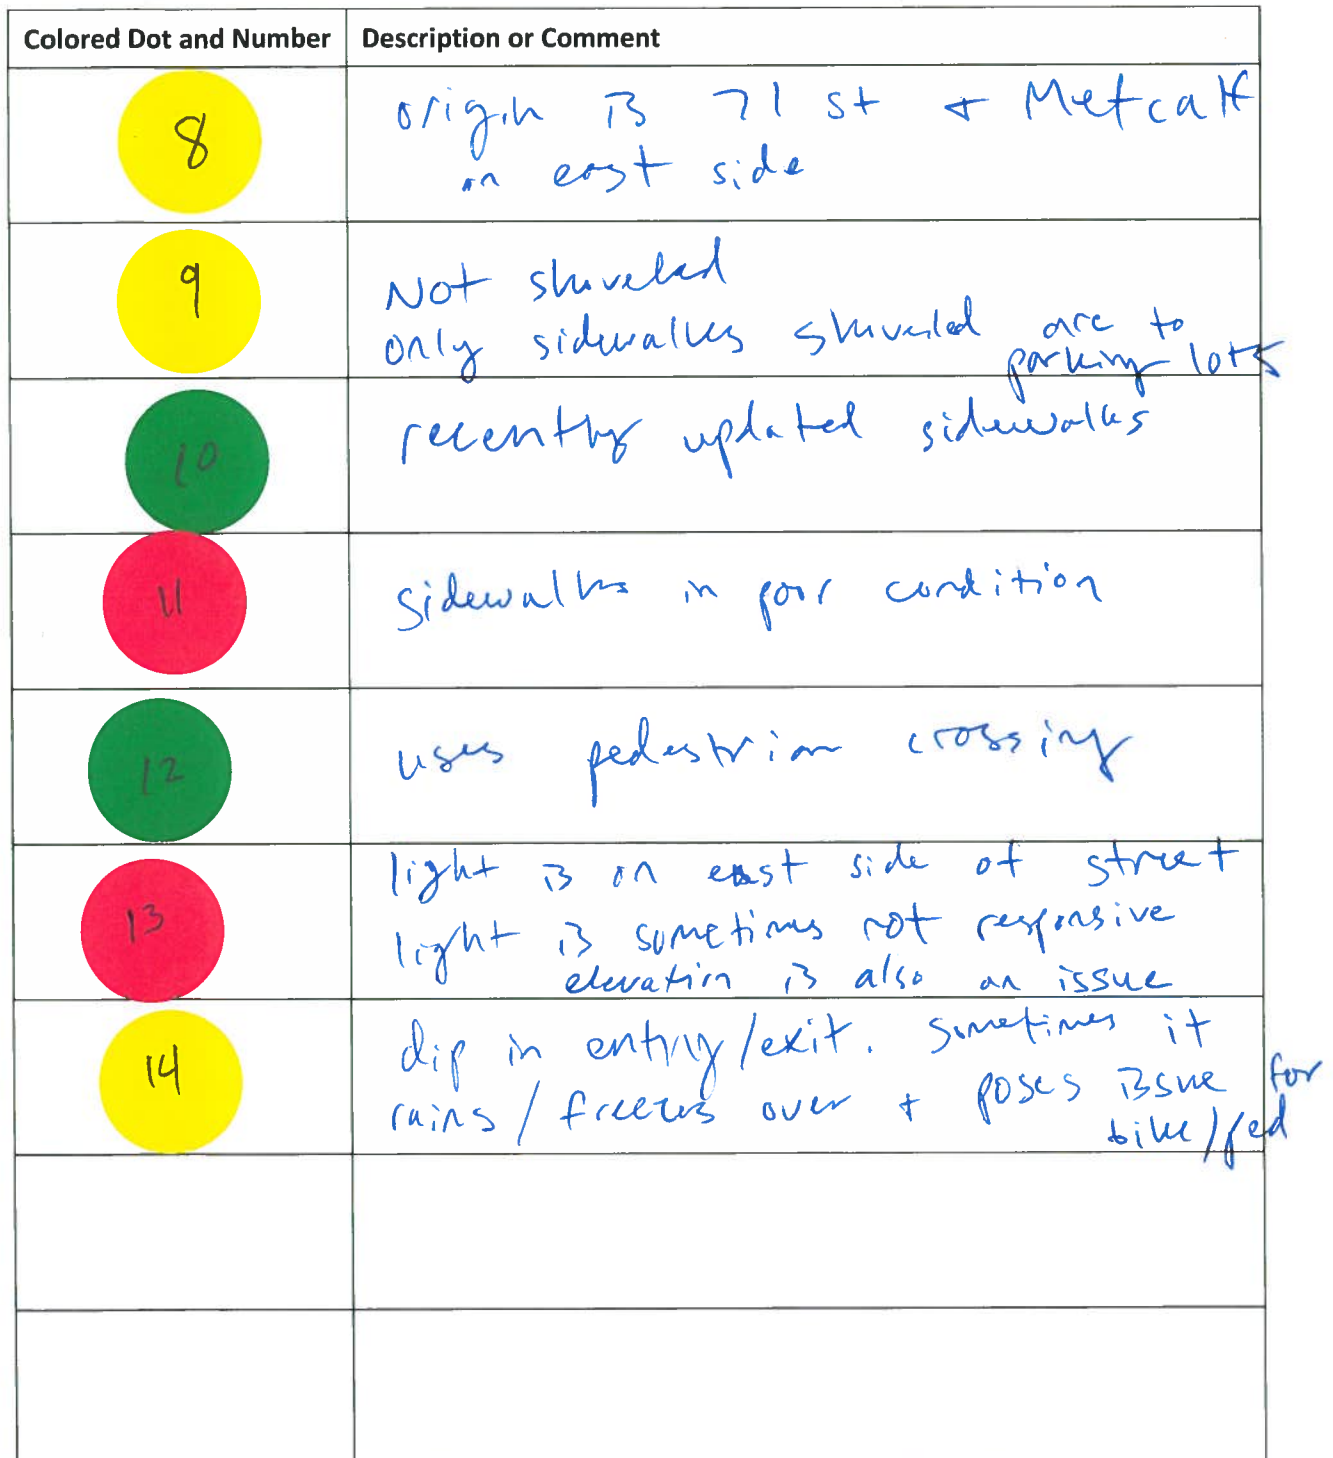 Colored Dot and Number Description or Comment
8 origin is 71 st + Metcalf
on east side
9 Not shoveled
only sidewalks shoveled are to
parking lots
10 recently updated sidewalks
11 sidewalks in poor condition
12 uses pedestrian crossing
13 light is on east side of street
light is sometimes not responsive
elevation is also an issue
14 dip in entry/exit. Sometimes it
rains/freezes over + poses issue for
bike/ped